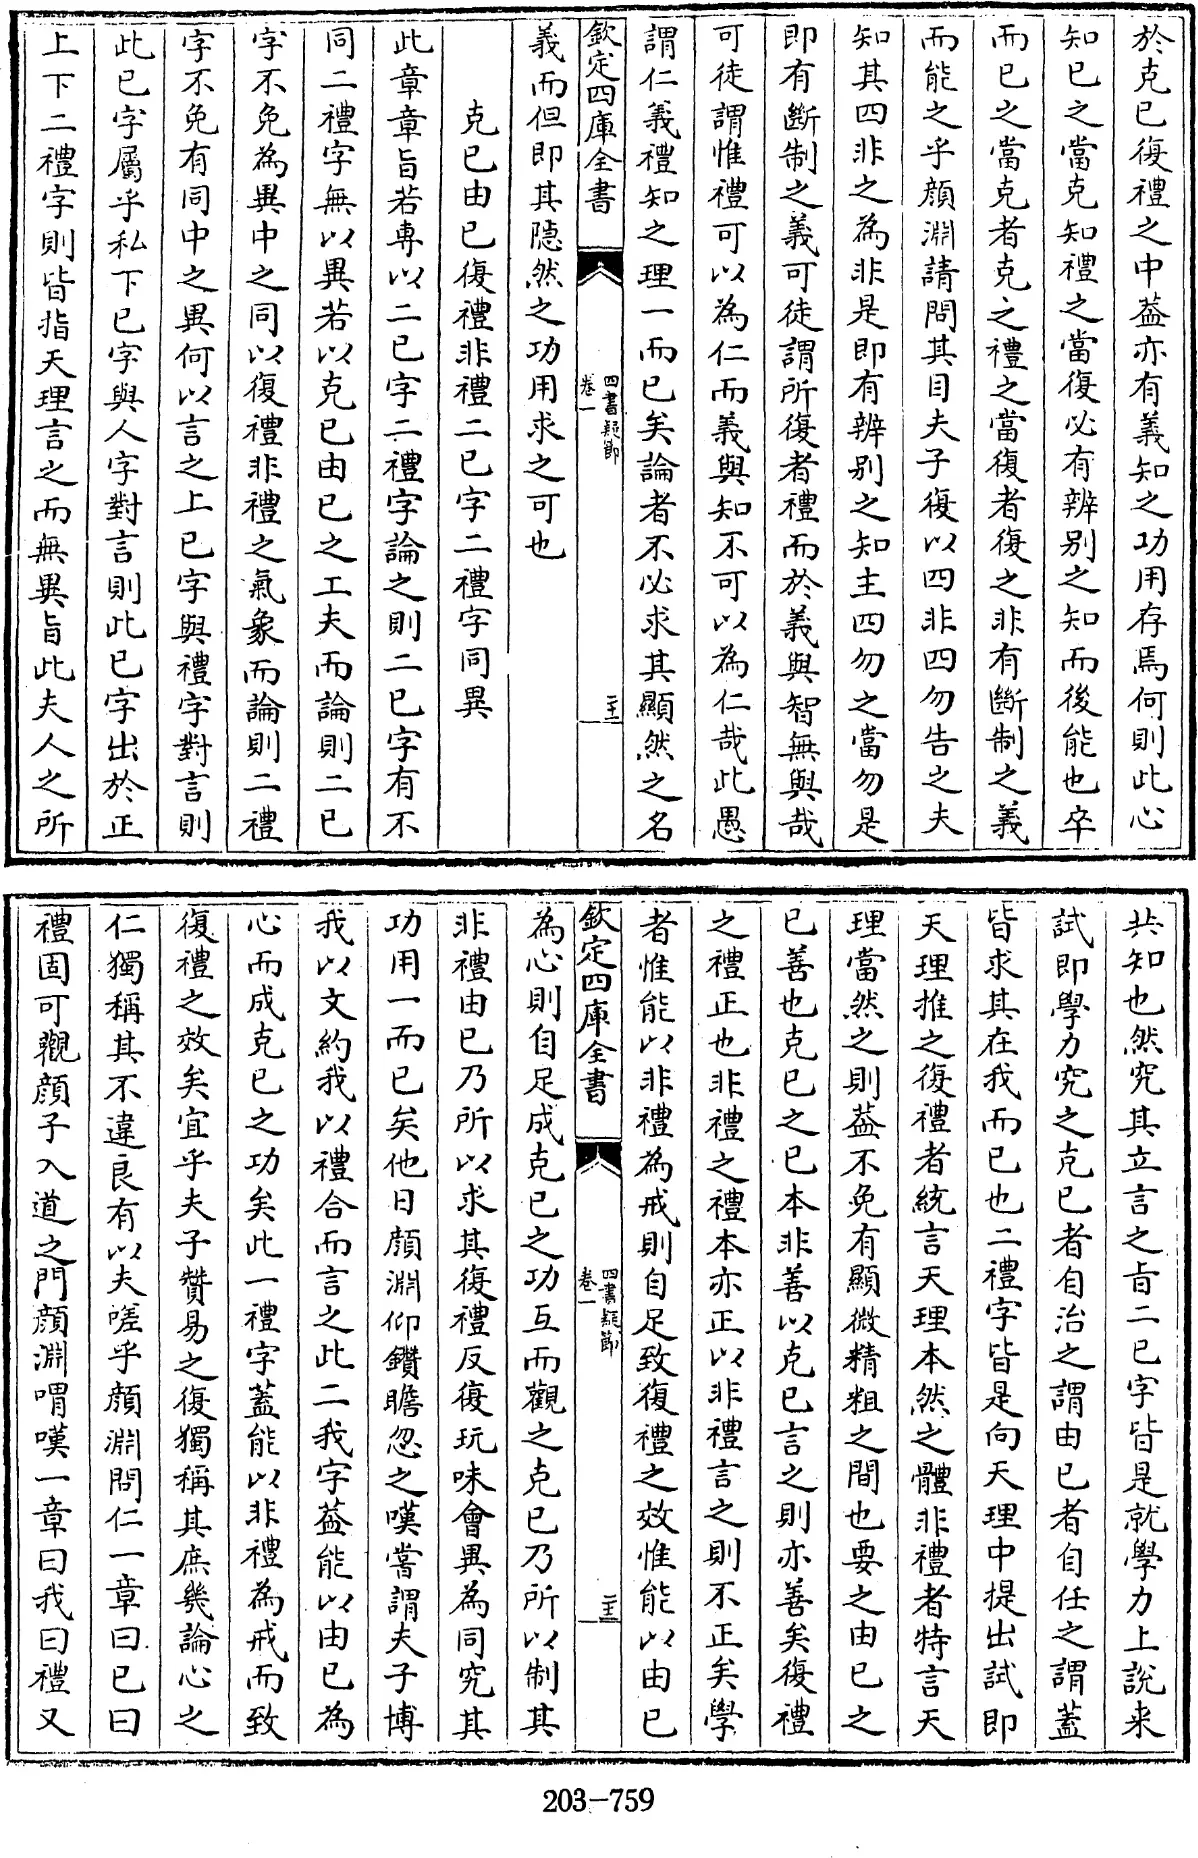 於克已復禮之中葢亦有義知之功用存焉何則此心
知已之當克知禮之當復必有辨别之知而後能也卒
而已之當克者克之禮之當復者復之非有斷制之義
而能之乎顔淵請問其目夫子復以四非四勿告之夫
知其四非之為非是即有辨别之知主四勿之當勿是
即有斷制之義可徒謂所復者禮而於義與智無與哉
可徒謂惟禮可以為仁而義與知不可以為仁哉此愚
謂仁義禮知之理一而已矣論者不必求其顯然之名
欽定四庫全書
四書疑節
卷一
二十一
義而但即其隠然之功用求之可也
克已由已復禮非禮二已字二禮字同異
此章章旨若専以二已字二禮字論之則二已字有不
同二禮字無以異若以克已由已之工夫而論則二已
字不免為異中之同以復禮非禮之氣象而論則二禮
字不免有同中之異何以言之上已字與禮字對言則
此已字屬乎私下已字與人字對言則此已字出於正
上下二禮字則皆指天理言之而無異旨此夫人之所
共知也然究其立言之旨二已字皆是就學力上說来
試即學力究之克已者自治之謂由已者自任之謂葢
皆求其在我而已也二禮字皆是向天理中提出試即
天理推之復禮者統言天理本然之體非禮者特言天
理當然之則葢不免有顯微精粗之間也要之由已之
已善也克已之已本非善以克已言之則亦善矣復禮
之禮正也非禮之禮本亦正以非禮言之則不正矣學
者惟能以非禮為戒則自足致復禮之效惟能以由已
欽定四庫全書
四書疑節
卷一
二十二
為心則自足成克已之功互而觀之克已乃所以制其
非禮由已乃所以求其復禮反復玩味㑹異為同究其
功用一而已矣他日顔淵仰鑽瞻忽之嘆嘗謂夫子博
我以文約我以禮合而言之此二我字葢能以由已為
心而成克已之功矣此一禮字蓋能以非禮為戒而致
復禮之效矣宜乎夫子贊易之復獨稱其庶幾論心之
仁獨稱其不違良有以夫嗟乎顔淵問仁一章曰已曰
禮固可觀顔子入道之門顔淵喟嘆一章曰我曰禮又
203-759